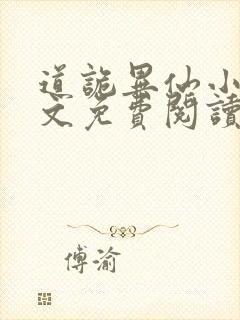 道詭異仙小
文免費閱讀
傅渝